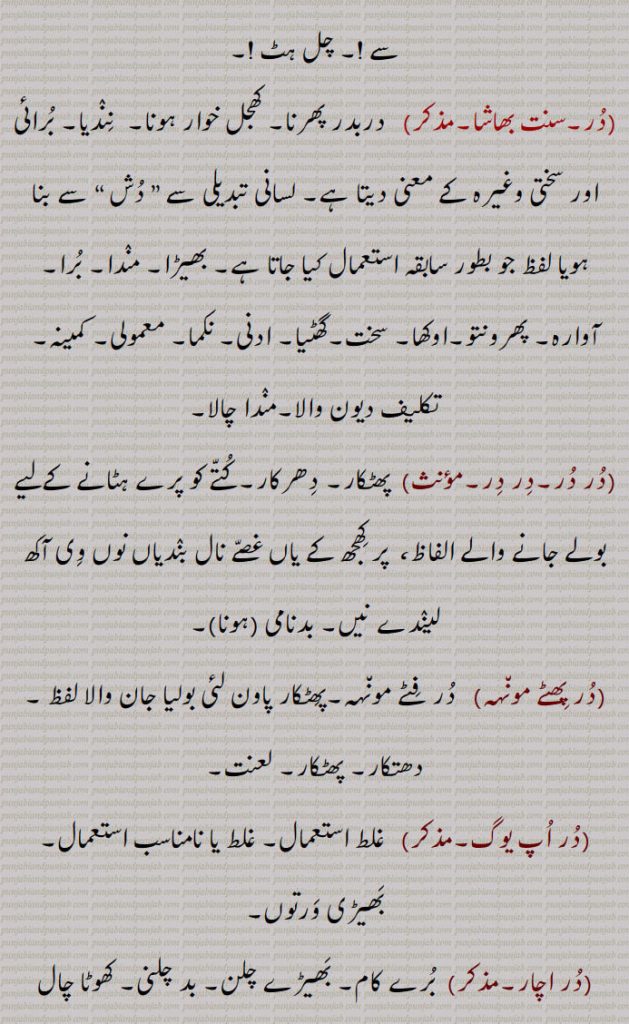 سے !۔ چل ہٹ !۔
(دُر۔سنت بھاشا۔مذکر) دربدر پھرنا۔ کھجل خوار ہونا۔ نِنْدیا۔ بُرائی
اور سختی وغیرہ کے معنی دیتا ہے۔ لسانی تبدیلی سے ” دُش “ سے بنا
ہویا لفظ جو بطور سابقہ استعمال کیا جاتا ہے۔ بھیڑا۔ منْدا۔ بُرا۔
آوارہ۔ پھرونتو۔اوکھا۔ سخت۔گھٹیا۔ ادنی۔ نکما۔ معمولی۔ کمینہ۔
تکلیف دیون والا۔منْدا چالا۔
(دُر دُر۔دِر دِر۔مؤنث) پھٹکار۔ دِھرکار۔کُتّے کو پرے ہٹانے کےلیے
بولے جانے والے الفاظ، پر کِھجھ کے یاں غصّے نال بنْدیاں نوں وِی آکھ
لینْدے نیں۔ بدنامی (ہونا)۔
(دُر پِھٹے مونّہہ) دُر فِٹے مونّہہ۔پِھٹکار پاون لئی بولیا جان والا لفظ ۔
دھتکار۔ پھٹکار۔ لعنت۔
(دُر اُپ یوگ۔مذکر) غلط استعمال۔ غلط یا نامناسب استعمال۔
بَھیڑی وَرتوں۔
(دُر اچار۔مذکر) بُرے کام۔ بَھیڑے چلن۔ بد چلنی۔ کھوٹا چال